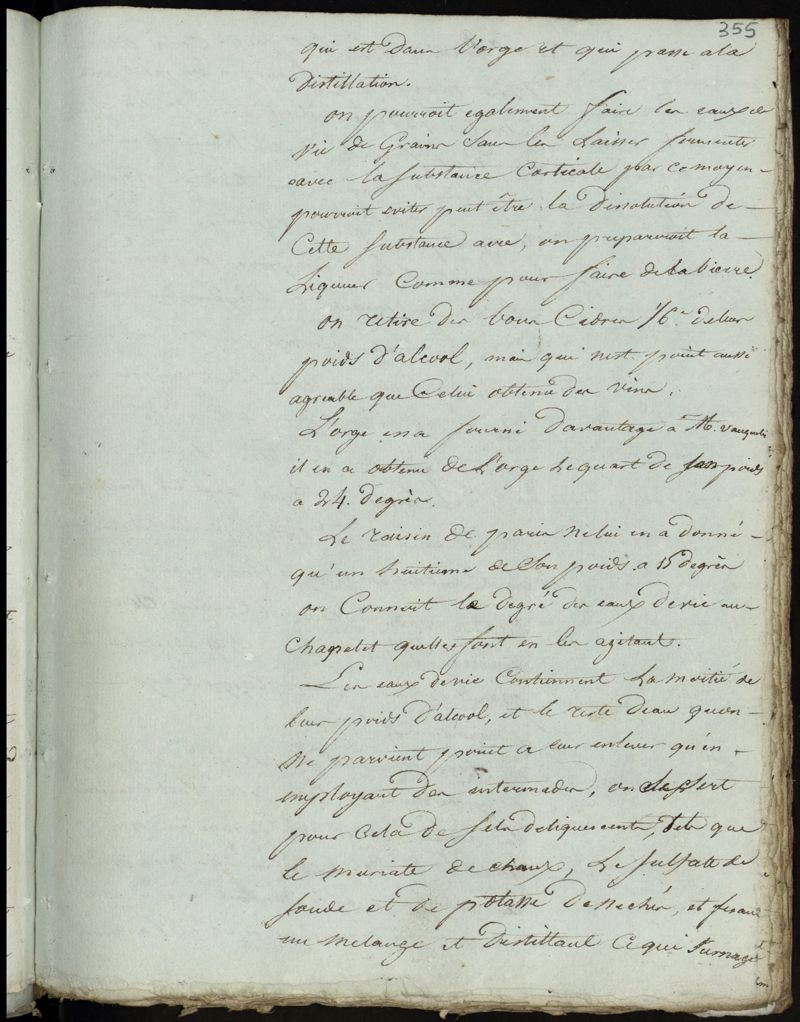 355
qui est dans l'orge et qui passe a la
distillation.
on pourroit egalement faire les eaux de
vie de Grains sans les Laisser fermenter
avec la substance Corticale par ce moyen
pourroit eviter peut être la dissolution de
Cette substance acre, on prepareroit la
Liqueur Comme pour faire de la bierre.
on retire des bons Cidres 1/6.e de leur
poids d'alcool, mais qui n'est point aussi
agreable que Celui obtenu des vins.
L'orge en a fourni davantage a M. vauquelin
il en a obtenu de L'orge Le quart de son poids
a 24. degrés.
Le raisin de paris ne lui en a donné
qu'un huitieme de Son poids a 15 degrés
on Connoit le degré des eaux de vie au
chapelet quelles font en les agitant.
Les eaux de vie Contiennent La moitié de
leur poids d'alcool, et le reste d'eau qu'on
ne parvient point a leur enlever qu'en
employant des intermedes, on se sert
pour Cela de sels deliquescents, tels que
le muriate de chaux, Le sulfate de
soude et de potasse dessechés, et fesant
un melange et distillant Ce qui surnage